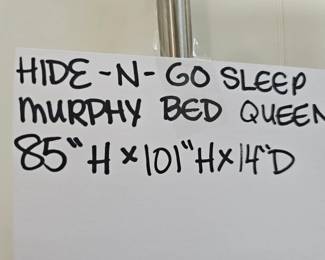 HIDE-N-GO SLEEP
MURPHY BED QUEEN
85"H x 101"H x 14"D